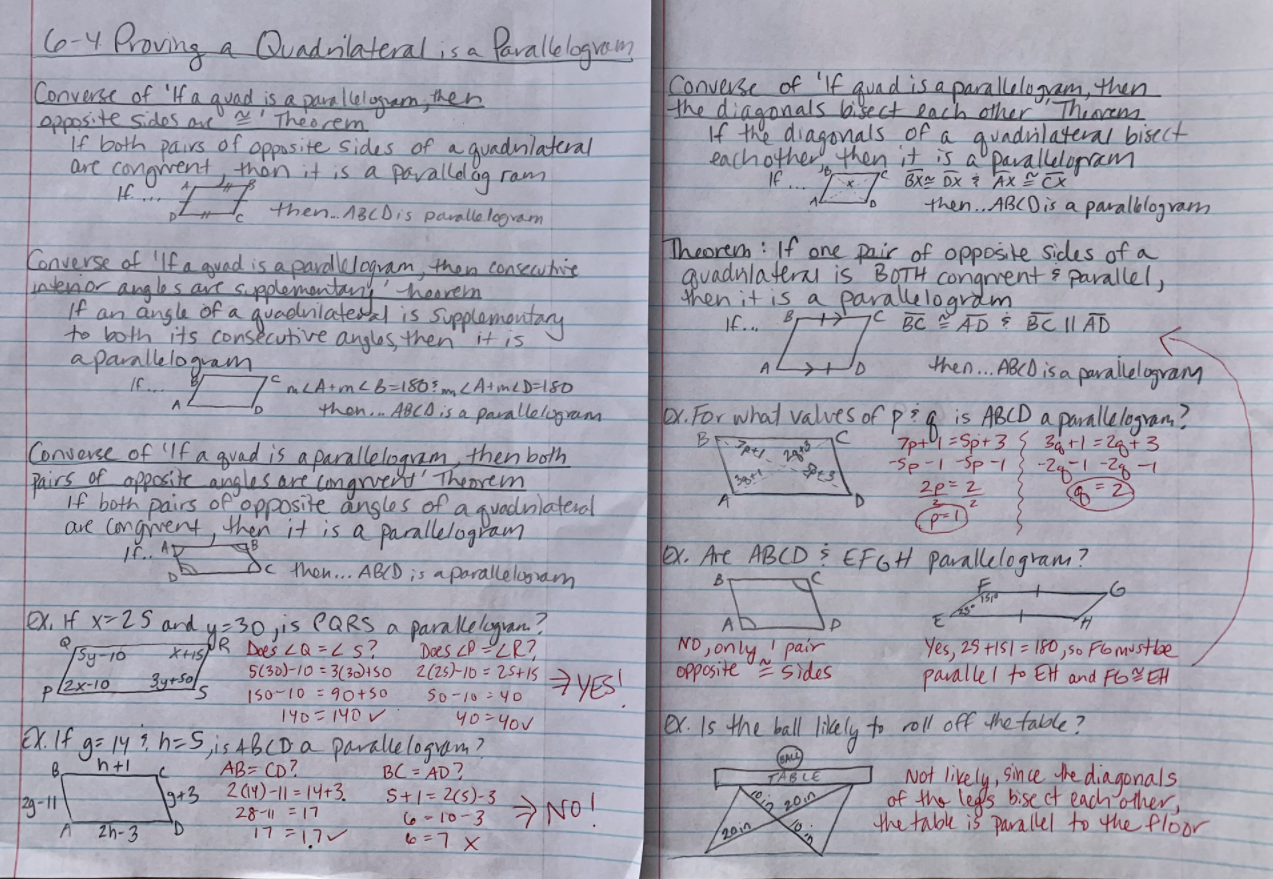 6-4 Proving a Quadrilateral is a Parallelogram
Converse of 'If a quad is a parallelogram, then
opposite sides are ≅' Theorem
If both pairs of opposite sides of a quadrilateral
are congruent, then it is a parallelogram
If ....
A B
D C
then...ABCD is parallelogram
Converse of 'If a quad is a parallelogram, then consecutive
interior angles are supplementary' theorem
If an angle of a quadrilateral is supplementary
to both its consecutive angles, then it is
a parallelogram
If ....
B C
A D
m∠A+m∠B=180 & m∠A+m∠D=180
then... ABCD is a parallelogram
Converse of 'If a quad is a parallelogram, then both
pairs of opposite angles are congruent' Theorem
If both pairs of opposite angles of a quadrilateral
are congruent, then it is a parallelogram
If...
A B
D C
then... ABCD is a parallelogram
Ex. If x=25 and y=30, is PQRS a parallelogram?
Q R
5y-10 x+15
2x-10 3y+50
P S
Does ∠Q = ∠S?
5(30)-10 = 3(30)+50
150-10 = 90+50
140 = 140 ✓
Does ∠P = ∠R?
2(25)-10 = 25+15
50-10 = 40
40=40 ✓
⇒ YES!
Ex. If g=14 & h=5, is ABCD a parallelogram?
h+1
B C
2g-11 g+3
A D
2h-3
AB=CD?
2(14)-11=14+3
28-11 = 17
17 = 17 ✓
BC = AD?
5+1 = 2(5)-3
6 = 10-3
6 = 7 x
⇒ NO!
Converse of 'If quad is a parallelogram, then
the diagonals bisect each other' Theorem
If the diagonals of a quadrilateral bisect
each other, then it is a parallelogram
If ...
B C
X
A D
BX ≅ DX & AX ≅ CX
then...ABCD is a parallelogram
Theorem: If one pair of opposite sides of a
quadrilateral is BOTH congruent & parallel,
then it is a parallelogram
If...
B C
A D
BC ≅ AD & BC || AD
then...ABCD is a parallelogram
Ex. For what values of p & q is ABCD a parallelogram?
B C
7p+1 2q+3
3q+1 5p+3
A D
7p+1 = 5p+3
-5p-1 -5p-1
2p = 2
2 2
p=1
3q+1 = 2q+3
-2q-1 -2q-1
q = 2
Ex. Are ABCD & EFGH parallelogram?
B C
A D
F G
151°
25°
E H
NO, only 1 pair
opposite ≅ sides
Yes, 25+151=180, so FG must be
parallel to EH and FG≅EH
Ex. Is the ball likely to roll off the table?
BALL
TABLE
10in 20in
20in 10in
Not likely, since the diagonals
of the legs bisect each other,
the table is parallel to the floor